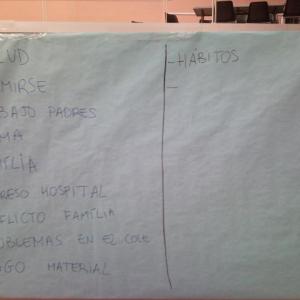 LUD
MIRSE
BAJO PADRES
MA
ILIA
RESO HOSPITAL
FLICTO FAMÍLIA
OBLEMAS EN EL COLE
GO MATERIAL
- HÁBITOS
-